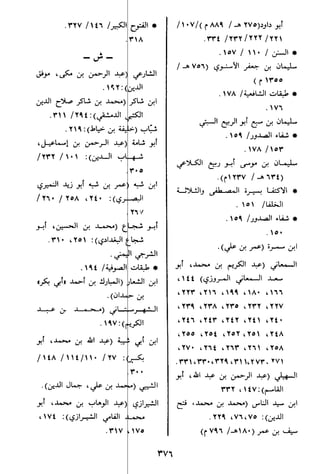 أبو داود (٢٧٥ هـ / ٨٨٩ م) / ١٠٧،
٢٢١/ ٢٢٢/ ٢٣٢/ ٣٣٤.
* السنن / ١١٠ / ١٥٧.
سليمان بن جعفر السنوسي (٧٥٦ هـ /
١٣٥٥ م)
* طبقات الشافعية/ ١٧٨.
١٧٦
سليمان بن سبع أبو الربيع السبتي
* شفاء الصدور/ ١٥٩.
١٥٣/ ١٧٨
سليمان بن موسى أبو الربيع الكلاعي
(٦٣٤ هـ / ١٢٣٧ م).
* الاكتفا بسيرة المصطفى والثلاثة
الخلفا/ ١٥١.
* شفاء الصدور/ ١٥٩.
١٥٠
سمرة (عمر بن علي).
السمعاني (عبد الكريم بن محمد، أبو
سعد السمعاني المروزي) ١٤٤،
١٦٦، ١٨٠، ١٩٩، ٢١٦، ٢٢٣،
٢٢٧، ٢٣٢، ٢٣٥، ٢٣٨، ٢٣٩،
٢٤٠، ٢٤١، ٢٤٢، ٢٤٣، ٢٤٦،
٢٤٨، ٢٥١، ٢٥٢، ٢٥٤، ٢٥٥،
٢٥٨، ٢٦١، ٢٦٣، ٢٦٤، ٢٧٠،
٢٧١، ٢٧٣، ٣١١، ٣٢٩، ٣٣٠، ٣٣١.
السهيلي (عبد الرحمن بن عبد الله، أبو
القاسم): ١٤٧، ٣٣٢
ابن سيد الناس (محمد بن محمد، فتح
الدين): ٧٥، ٧٦، ٢٢٩.
سيف بن عمر (١٨٠هـ/ ٧٩٦ م)
* الفتوح الكبير/ ١٤٦/ ٣٢٧.
٣١٨.
- ش -
الشارعي (عبد الرحمن بن مكي، موفق
الدين): ١٩٢.
ابن شاكر (محمد بن شاكر صلاح الدين
الكتبي الدمشقي): ٢٩٤/ ٣١١.
شباب (خليفة بن خياط): ٢١٩.
أبو شامة (عبد الرحمن بن إسماعيل،
شهاب الدين): ١٠١ / ٢٣٢/
٣٠٥
ابن شبه (عمر بن شبه أبو زيد النميري
البصري): ٢٤٠، ٢٥٨ / ٢٦٠/
٢٦٧
أبو شجاع (محمد بن الحسين، أبو
شجاع البغدادي): ٢٥١، ٣١٠.
الشرجي اليمني.
* طبقات الصوفية/ ١٩٤.
ابن الشعار (المبارك بن أحمد أبي بكر
بن حمدان).
الشهرستاني (محمد بن عبد
الكريم): ١٩٧.
ابن أبي شيبة (عبد الله بن محمد، أبو
بكر): ٢٧ / ١١٠/ ١١٤/ ١٤٨/
٣٠٠
الشيبي (محمد بن علي، جمال الدين).
الشيرازي (عبد الوهاب بن محمد، أبو
محمد الفامي الشيرازي): ١٧٤،
١٧٥، ٣١٧.
٣٧٦